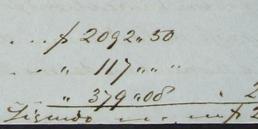 ... $ 2092,,50
... ,, 117,,,,,,
,, 379,,08 . 2
Liquido ... $ 2